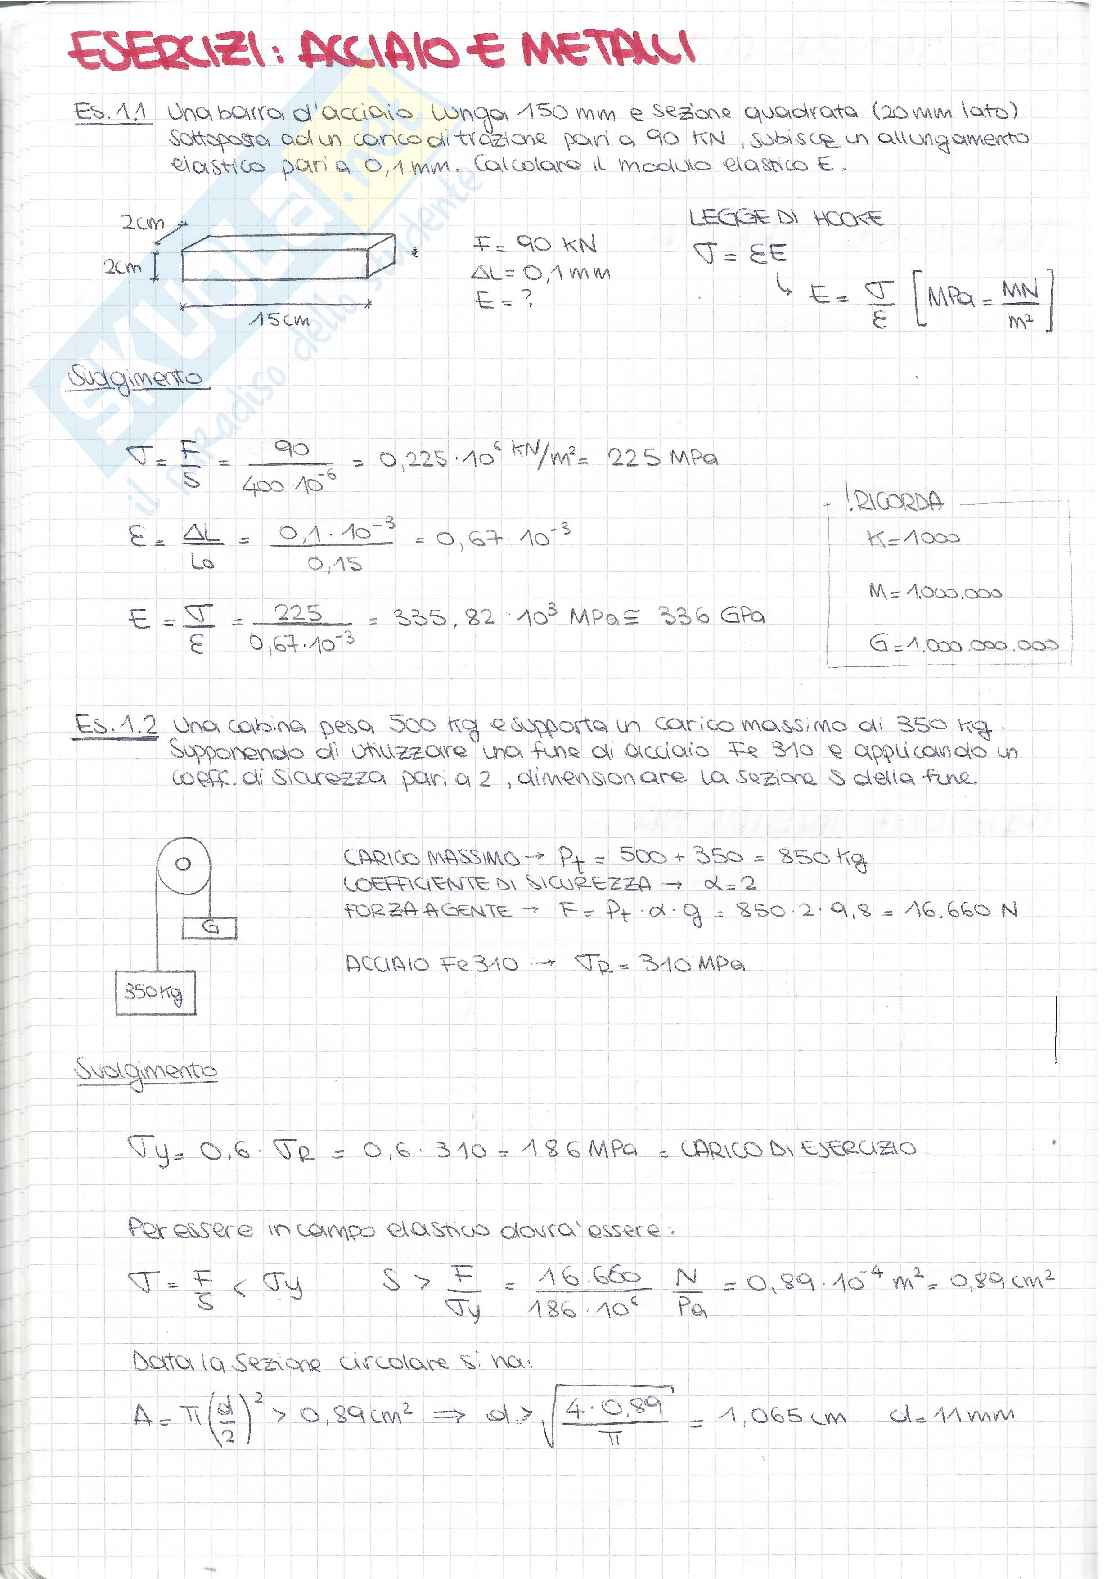 ESERCIZI: ACCIAIO E METALLI
Es. 1.1 Una barra d'acciaio lunga 150 mm e sezione quadrata (20 mm lato)
sottoposta ad un carico di trazione pari a 90 KN, subisce un allungamento
elastico pari a 0,1 mm. Calcolare il modulo elastico E.
2cm
2cm
15cm
F = 90 KN
ΔL = 0,1 mm
E = ?
LEGGE DI HOOKE
σ = εE
↳ E = σ/ε [MPa = MN/m²]
Svolgimento
σ = F/S = 90/(400·10⁻⁶) = 0,225·10⁶ KN/m² = 225 MPa
ε = ΔL/L₀ = (0,1·10⁻³)/0,15 = 0,67·10⁻³
E = σ/ε = 225/(0,67·10⁻³) = 335,82·10³ MPa ≅ 336 GPa
!RICORDA
K = 1000
M = 1.000.000
G = 1.000.000.000
Es. 1.2 Una cabina pesa 500 kg e supporta un carico massimo di 350 kg.
Supponendo di utilizzare una fune di acciaio Fe 310 e applicando un
coeff. di sicurezza pari a 2, dimensionare la sezione S della fune.
G
350 kg
CARICO MASSIMO → Pt = 500 + 350 = 850 kg
COEFFICIENTE DI SICUREZZA → α = 2
FORZA AGENTE → F = Pt · α · g = 850 · 2 · 9,8 = 16.660 N
ACCIAIO Fe 310 → σR = 310 MPa
Svolgimento
σy = 0,6 · σR = 0,6 · 310 = 186 MPa = CARICO DI ESERCIZIO
Per essere in campo elastico dovrà essere:
σ = F/S < σy S > F/σy = 16.660/(186·10⁶) N/Pa = 0,89·10⁻⁴ m² = 0,89 cm²
Data la sezione circolare si ha:
A = π(d/2)² > 0,89 cm² ⇒ d > √(4·0,89/π) = 1,065 cm d = 11 mm
SKUOLA.net
il paradiso dello studente